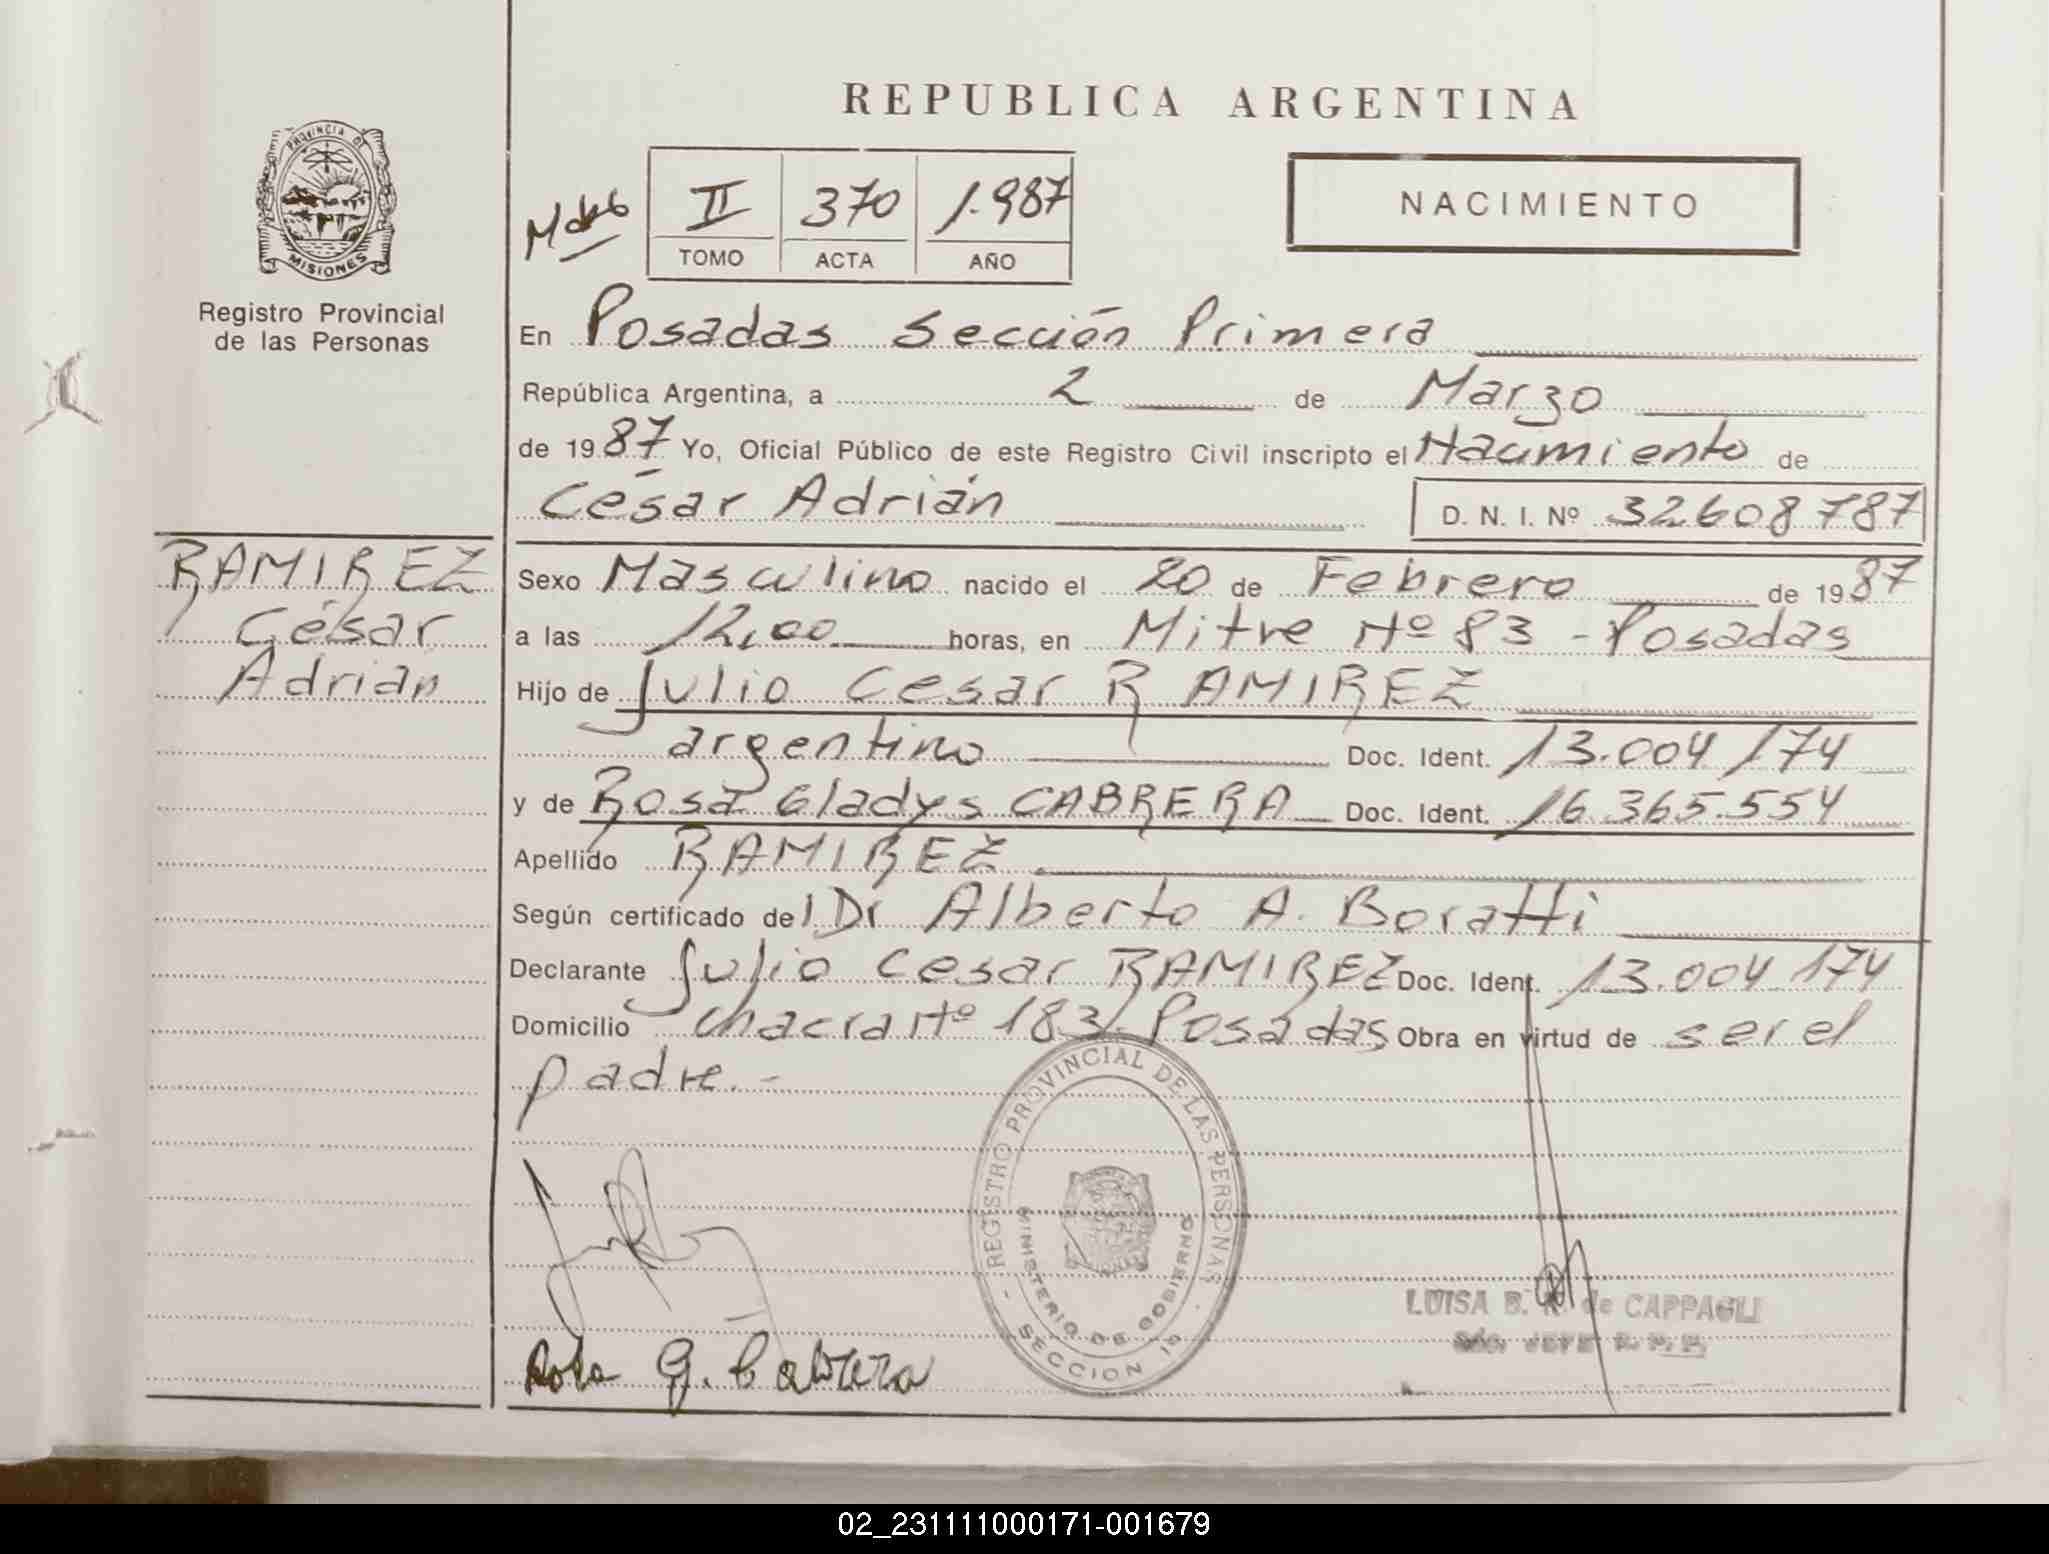 PROVINCIA DE
MISIONES
Registro Provincial
de las Personas
RAMIREZ
César
Adrián
REPUBLICA ARGENTINA
II 370 1.987
TOMO ACTA AÑO
NACIMIENTO
En Posadas Sección Primera
República Argentina, a 2 de Marzo
de 1987 Yo, Oficial Público de este Registro Civil inscripto el Nacimiento de
César Adrián D. N. I. Nº 32608787
Sexo Masculino nacido el 20 de Febrero de 1987
a las 12,00 horas, en Mitre Nº 83 - Posadas
Hijo de Julio Cesar RAMIREZ
argentino Doc. Ident. 13.004174
y de Rosa Gladys CABRERA Doc. Ident. 16.365.554
Apellido RAMIREZ
Según certificado del Dr Alberto A. Boratti
Declarante Julio Cesar RAMIREZ Doc. Ident. 13.004174
Domicilio Chacra Nº 183 Posadas Obra en virtud de ser el
padre.-
REGISTRO PROVINCIAL DE LAS PERSONAS
MINISTERIO DE GOBIERNO
SECCION 1ª
LUISA B. de CAPPAGLI
JEFE
Rosa G. Cabrera
02_231111000171-001679